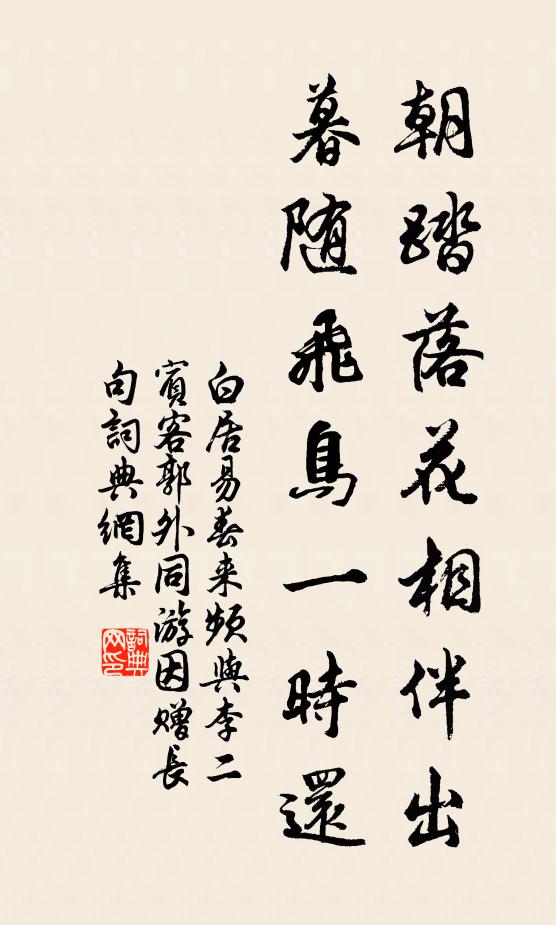 朝踏落花相伴出
暮随飛鳥一時還
白居易春来频與李二
賓客郭外同游因贈長
句詞典網集
詞典
网印